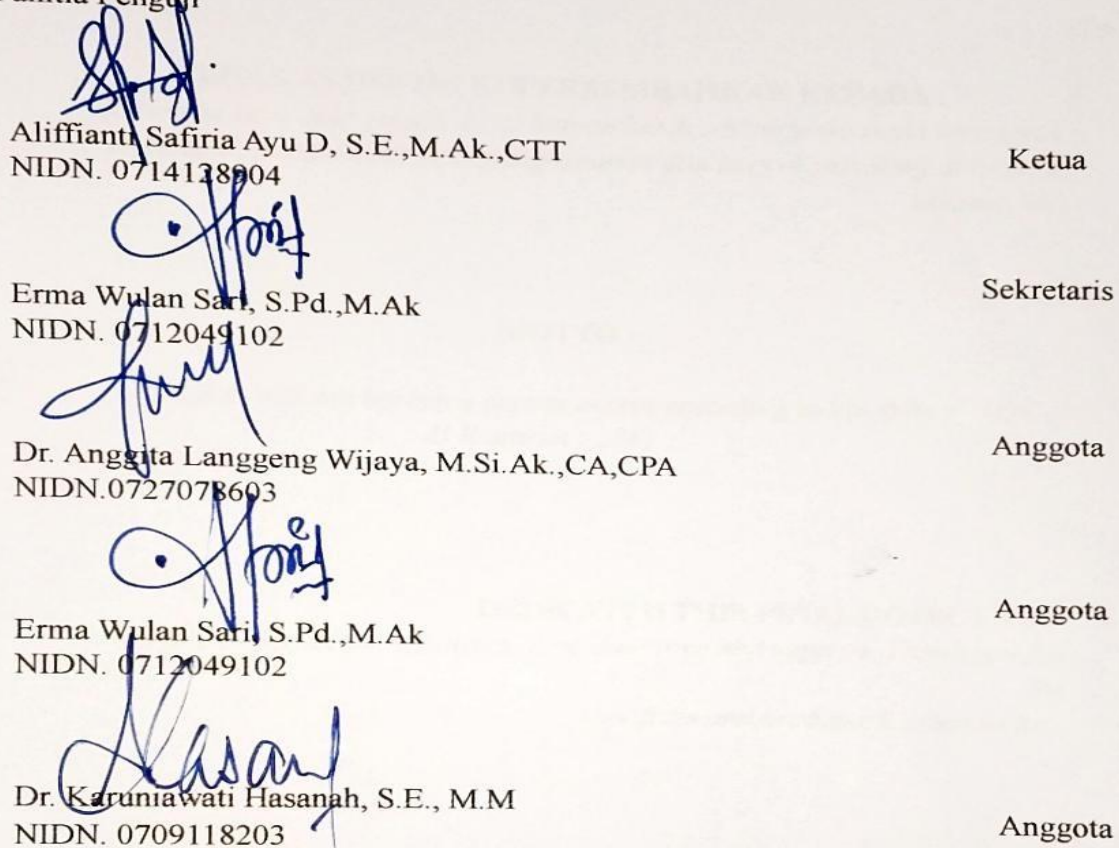 Panitia Penguji
Aliffianti Safiria Ayu D, S.E.,M.Ak.,CTT
NIDN. 0714128904
Ketua
Erma Wulan Sari, S.Pd.,M.Ak
NIDN. 0712049102
Sekretaris
Dr. Anggita Langgeng Wijaya, M.Si.Ak.,CA,CPA
NIDN.0727078603
Anggota
Erma Wulan Sari, S.Pd.,M.Ak
NIDN. 0712049102
Anggota
Hasan
Dr. Karuniawati Hasanah, S.E., M.M
NIDN. 0709118203
Anggota